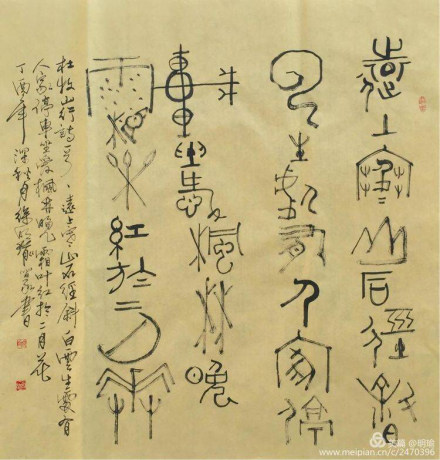 遠上寒山石徑斜
白云生處有人家停
車坐愛楓林晚
霜葉紅於二月花
杜牧山行詩
遠上寒山石徑斜白雲生處有
人家停車坐愛楓林晚霜叶紅於二月花
丁酉年深秋月
篆書
美篇 @明瑜
www.meipian.cn/c/2470396